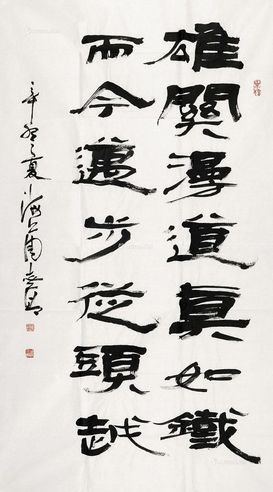 雄關漫道真如鐵
而今邁步從頭越
辛卯之夏